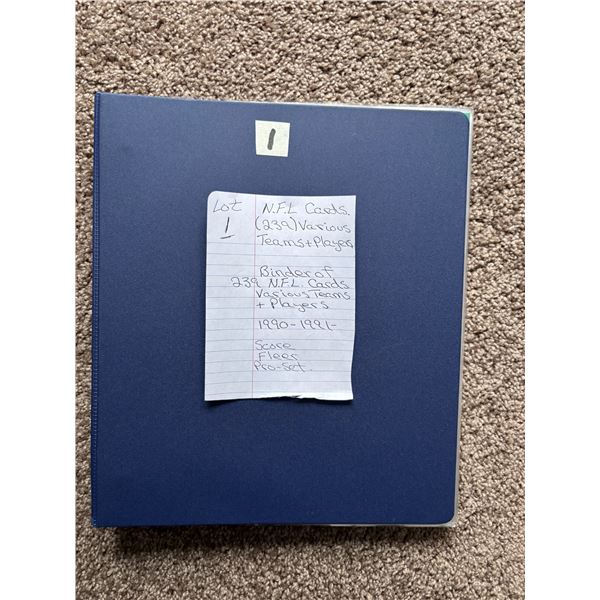 1
Lot
1
N.F.L Cards.
(239) Various
Teams + Players
Binder of
239 N.F.L. Cards
Various Teams
+ Players
1990-1991-
Score
Fleer
Pro-Set.